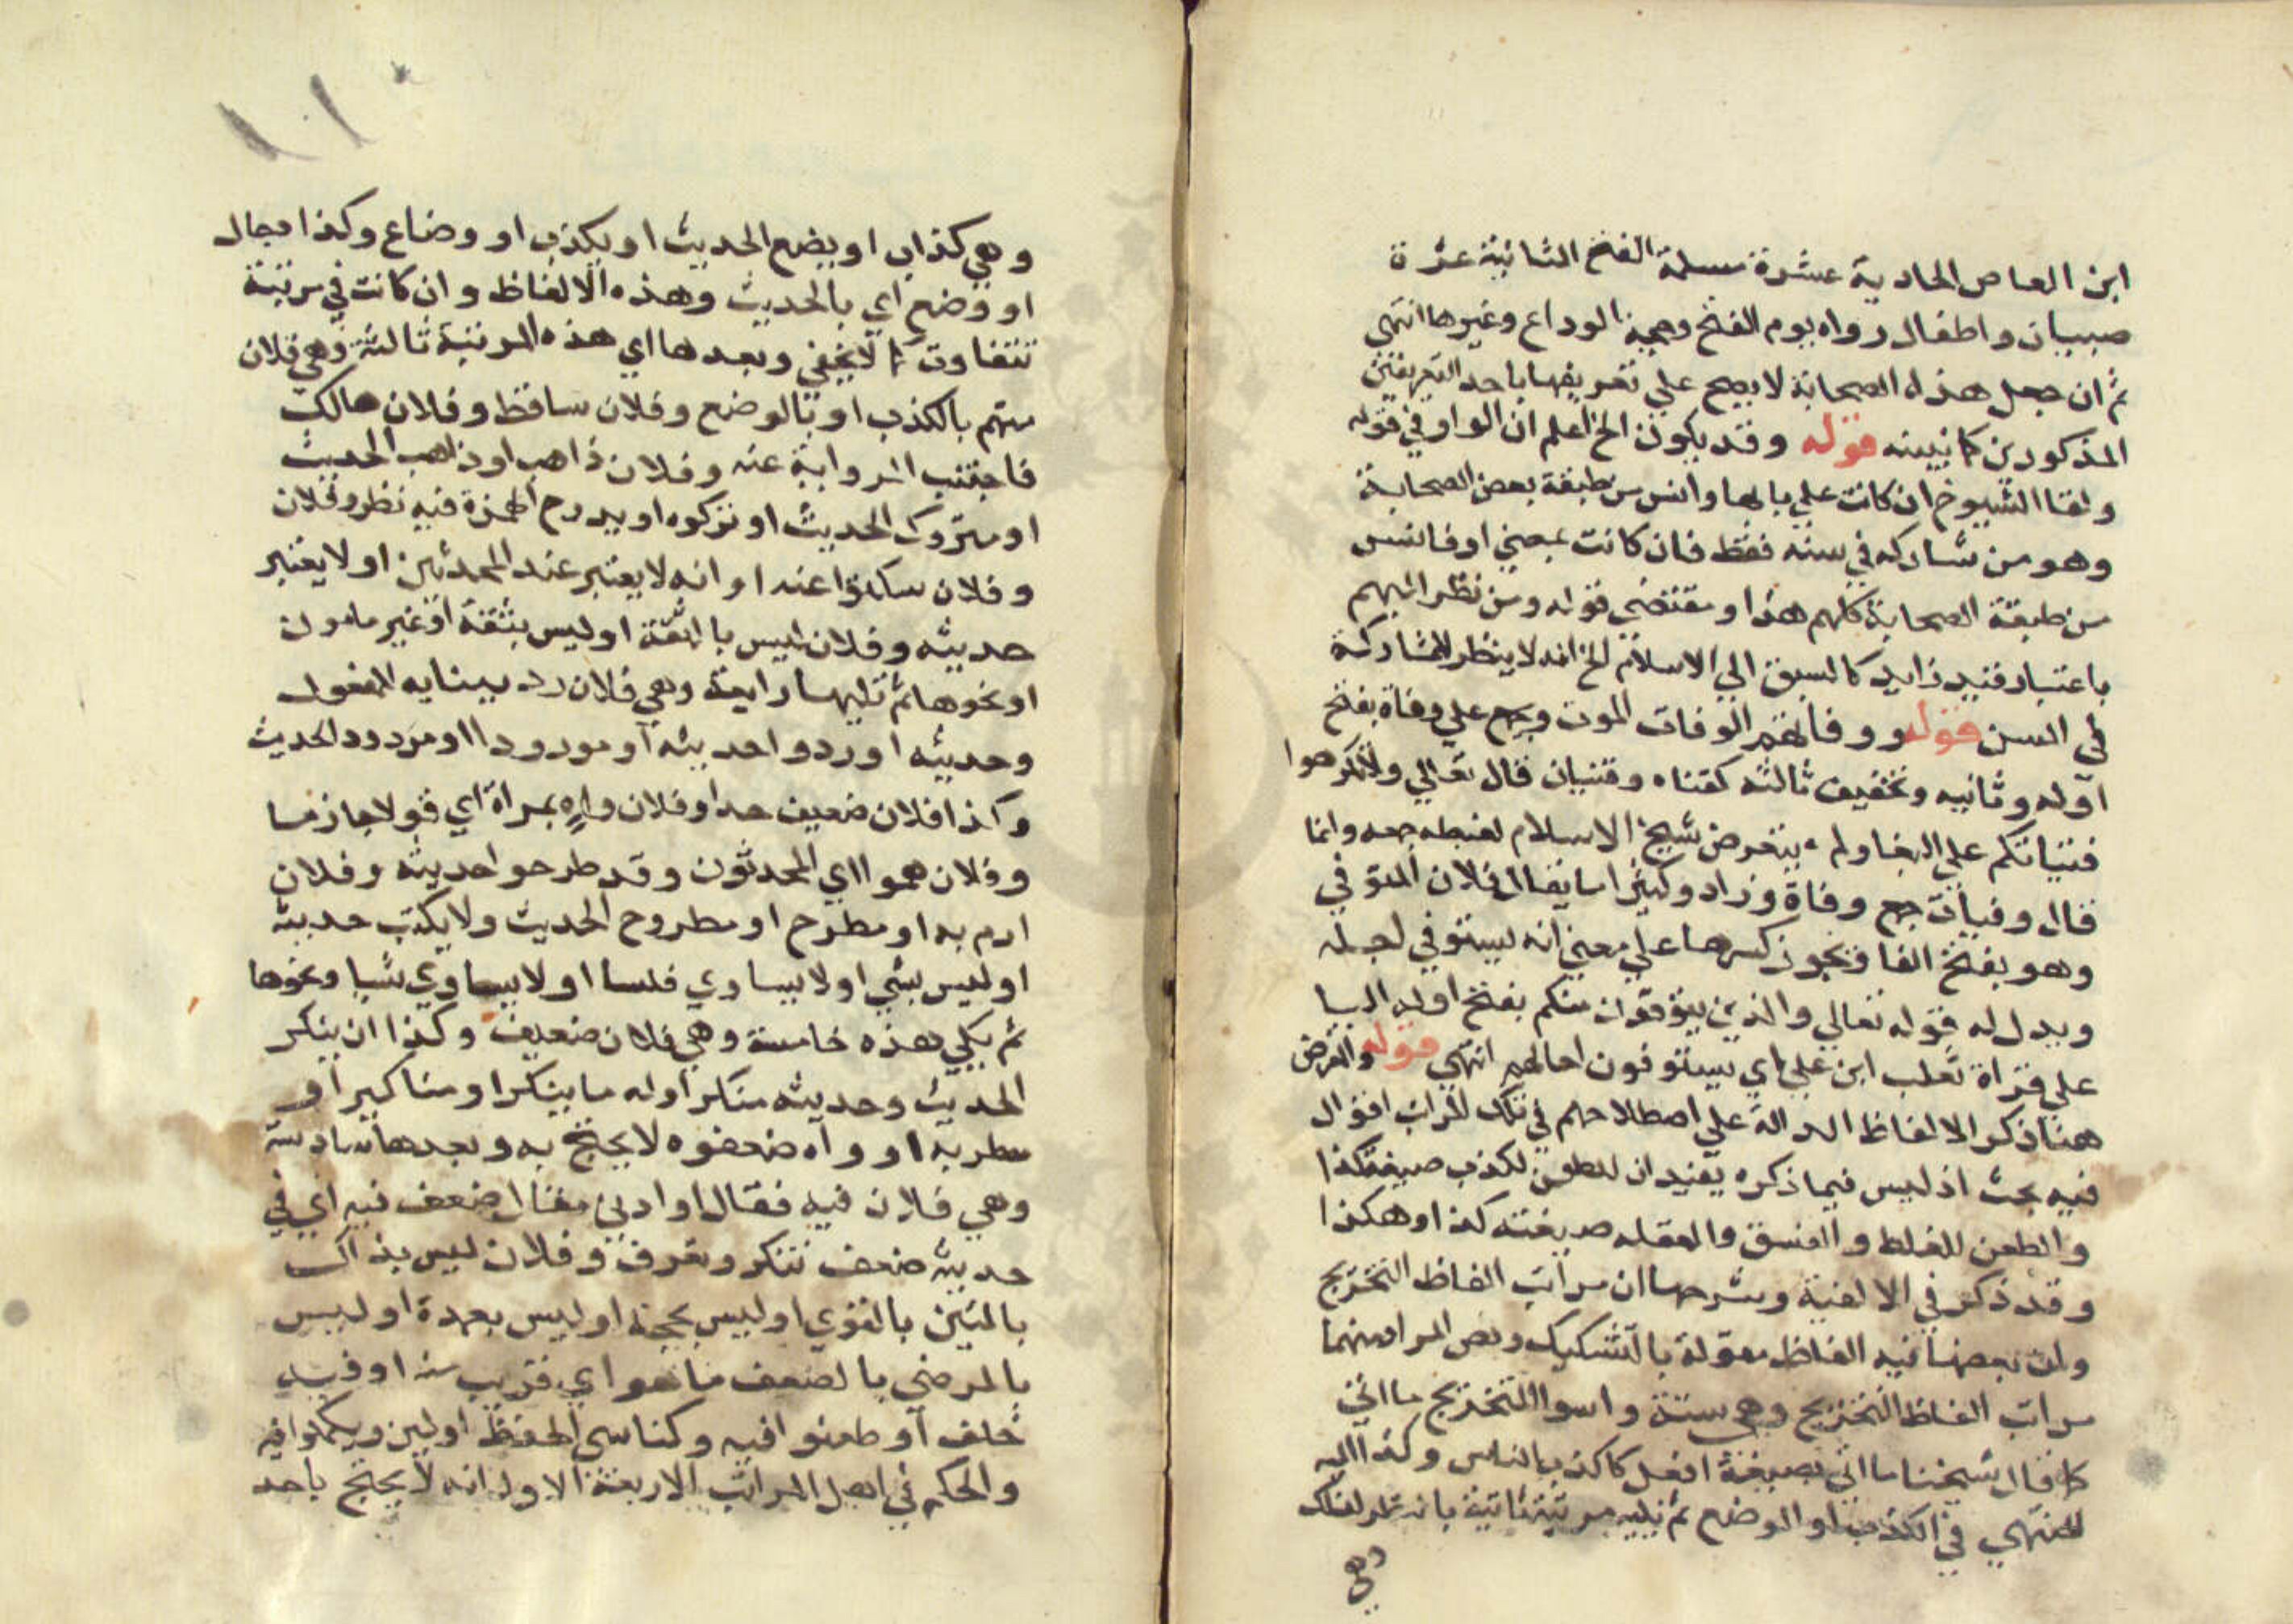 ابن العاص الحادية عشرة مسلمة الفتح الثانية عشرة
صبيان واطفال رواه يوم الفتح وحجة الوداع وغيرها انتهى
ثم ان جعل هذه الصحابة لا يصح علي تعريفها باحد التعريفين
المذكورين كما نبينه قوله وقد يكون الخ اعلم ان الواو في قوله
ولقا الشيوخ ان كانت علي بابها وانس من طبقة بعض الصحابة
وهو من شاركه في سنه فقط فان كانت بمعني او فانس
من طبقة الصحابة كلهم هذا ومقتضى قوله ومن نظر اليهم
باعتبار قيد زايد كالسبق الي الاسلام الخ انه لا ينظر للمشاركة
في السن قوله ووفاتهم الوفات الموت وجمع علي وفاة بفتح
اوله وثانيه وتخفيف ثالثه كفتاه وفتيان قال تعالي ولا تكرهوا
فتياتكم علي البغا ولم يتعرض شيخ الاسلام لضبطه جمعه وانما
قال وفيات جمع وفاة وزاد وكثيرا ما يقال فلان المتوفي
وهو بفتح الفا ويجوز كسرها علي معني انه يستوفي اجله
ويدل له قوله تعالي والذين يتوفون منكم بفتح اوله اليا
علي قراة ثعلب ابن علي اي يستوفون اجالهم انتهي قوله والغرض
هنا ذكر الالفاظ الدالة علي اصطلاحهم في تلك المراتب اقول
فيه بحث اذ ليس فيما ذكره يفيد ان للطعن لكذب صيغة كذا
والطعن للغلط والفسق والغفله صيغته كذا وهكذا
وقد ذكر في الالفية وشرحها ان مراتب الفاظ التخريج
وان بعضها فيه الفاظ مقولة بالتشكيك ونص المراد منهما
مراتب الفاظ التخريج وهي ستة واسوا التخريج ما اتي
كما قال شيخنا ما اتي بصيغة افعل كاكذب الناس وكذا اليه
المنتهي في الكذب او الوضع ثم يليه مرتبة ثانية بانه تلك
وهي
وهي كذاب او يضع الحديث او يكذب او وضاع وكذا دجال
او وضع اي بالحديث وهذه الالفاظ وان كانت في مرتبة
تتفاوت كما لا يخفي وبعدها اي هذه المرتبة ثالثة وهي فلان
متهم بالكذب او بالوضع وفلان ساقط وفلان هالك
فاجتنب الرواية عنه وفلان ذاهب او ذاهب الحديث
او متروك الحديث او تركوه او بدرج الهمزة فيه نظر وفلان
وفلان سكتوا عنه او انه لا يعتبر عند المحدثين او لا يعتبر
حديثه وفلان ليس بالثقة او ليس بثقة او غير مامون
او نحوها ثم تليها رابعة وهي فلان رد ببنايه المفعول
وحديثه او ردوا حديثه او مردودا او مردود الحديث
وكذا فلان ضعيف جدا وفلان واه بمراة اي قولا جازما
وفلان هموا اي المحدثون وقد طرحوا حديثه وفلان
ارم به او مطرح او مطروح الحديث ولا يكتب حديثه
او ليس بشي او لا يساوي فلسا او لا يساوي شيا ونحوها
ثم يلي هذه خامسة وهي فلان ضعيف وكذا ان ينكر
الحديث وحديثه منكر اوله ما ينكر او مناكير او
مطربه او واه ضعفوه لا يحتج به وبعدها سادسة
وهي فلان فيه فقال او ادني مقال ضعف فيه اي في
حديثه ضعف تنكر وتعرف وفلان ليس بذاك
بالمتين بالقوي او ليس بحجة او ليس بعمدة او ليس
بالمرضي بالضعف ما هو اي قريب منه او فيه
خلف او طعنوا فيه وكذا سي الحفظ او لين وتكلموا فيه
والحكم في اهل المراتب الاربعة الاول انه لا يحتج باحد
١٠١